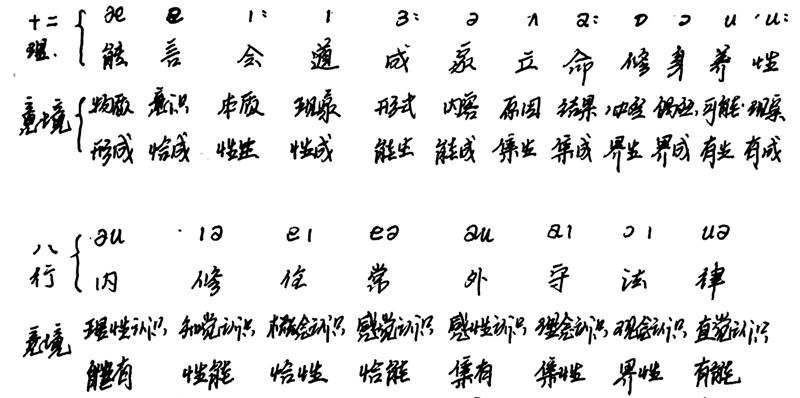 十二 æ e ɪ: ɪ ɜ: ə ʌ a: ɒ ɔ u u:
理. 能 善 会 道 成 家 立 命 修 身 养 性
意境 物质 意识 本质 现象 形式 内容 原因 结果 可能 现实
形成 恰成 性生 性成 能生 能成 集生 集成 界生 界成 有生 有成
八 əu ɪə eɪ eə au aɪ ɔɪ uə
行 内 修 住 常 外 守 法 律
意境 理性认识 知觉认识 概念认识 感觉认识 感性认识 理念认识 观念认识 直觉认识
能有 性能 恰性 恰能 集有 集性 界性 有能